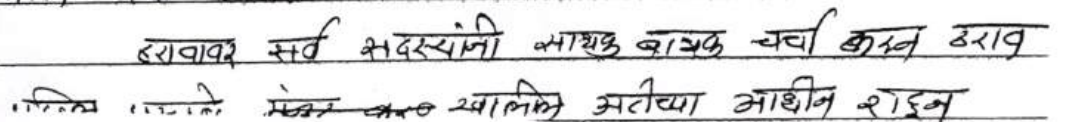 ठरावावर सर्व सदस्यांनी साधक बाधक चर्चा करुन ठराव
खालील अटीच्या आधीन राहून